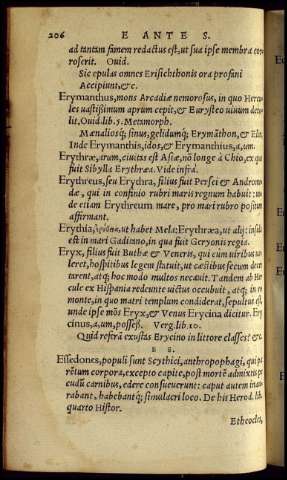 206 E ANTE S.
ad tantam famem redactus est, ut sua ipse membra cor
roserit. Ovid.
Sic epulas omnes Erisichthonis ora profani
Accipiunt, &c.
Erymanthus, mons Arcadiæ nemorosus, in quo Hercu
les vastissimum aprum cepit, & Eurysteo vivum detu-
lit. Ovid. lib. 5. Metamorph.
Mænaliosq; sinus, gelidumq; Erymāthon, & Elin.
Inde Erymanthis, idos, & Erymanthius, a, um.
Erythræ, arum, civitas est Asiæ, nō longe à Chio, ex qua
fuit Sibylla Erythræa. Vide infrà.
Erythreus, seu Erythra, filius fuit Persei & Androme
dæ, qui in confinio rubri maris regnum habuit: un
de etiam Erythreum mare, pro mari rubro positum
affirmant.
Erythia, ut habet Mela: Erythræa, ut alij: insula
est in mari Gaditano, in qua fuit Geryonis regia.
Eryx, filius fuit Buthæ & Veneris, qui cum viribus va-
leret, hospitibus legem statuit, ut cæstibus secum decer
tarent, atq; hoc modo multos necavit. Tandem ab Her
cule ex Hispania redeunte victus occubuit, atq; in eo
monte, in quo matri templum condiderat, sepultus est:
unde ipse mōs Eryx, & Venus Erycina dicitur. Ery
cinus, a, um, posses. Verg. lib. 10.
Quid referā exustas Erycino in littore classes? &c.
E S
Essedones, populi sunt Scythici, anthropophagi, qui pa
rētum corpora, excepto capite, post mortē admixtis pe
cudū carnibus, edere consueverunt: caput autem inau
rabant, habebantq; simulacri loco. De his Herod. lib.
quarto Histor.
Etheocles,